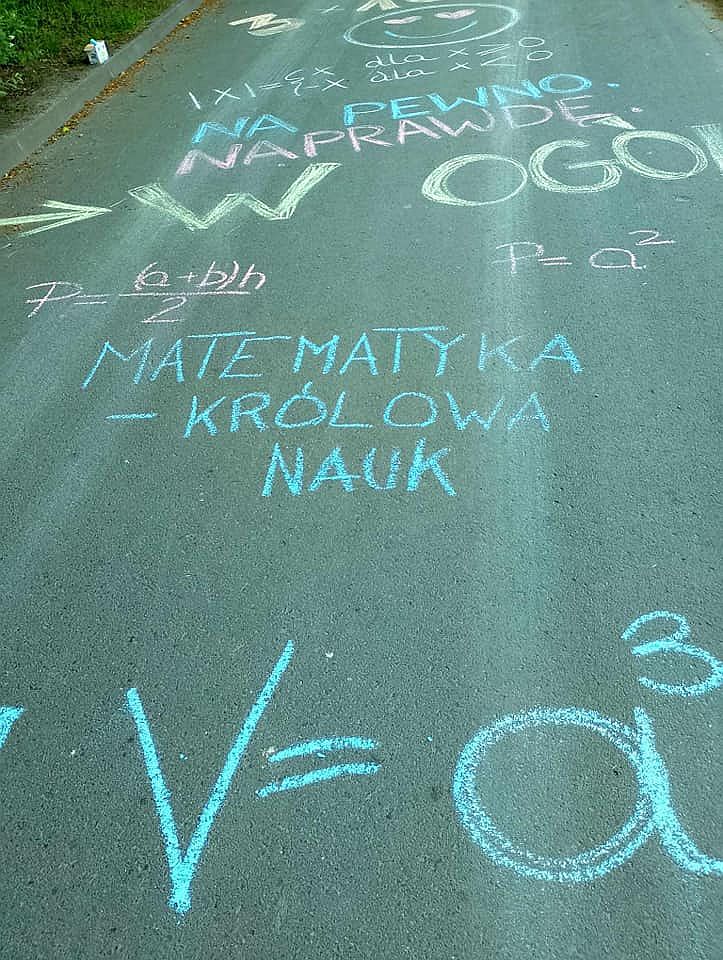 3
|x| = { x dla x ≥ 0
{ -x dla x ≤ 0
NA PEWNO.
NAPRAWDĘ.
→ W OGÓL
P = a²
P = (a+b)h / 2
MATEMATYKA
- KRÓLOWA
NAUK
V = a³